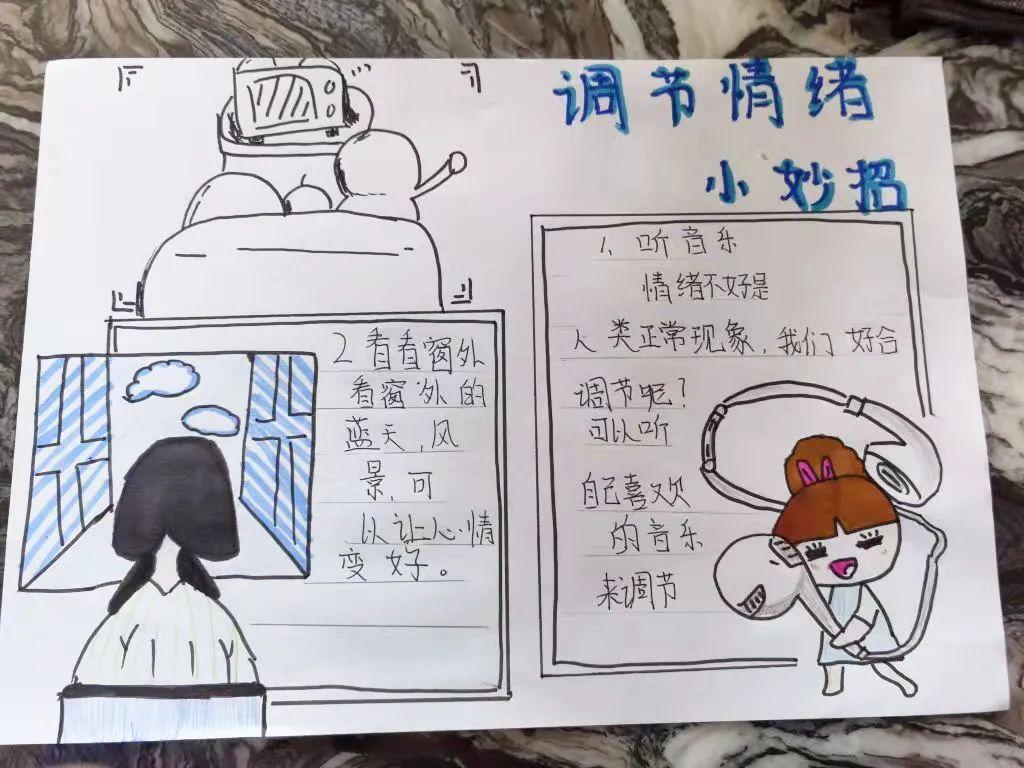 调节情绪
小妙招
1、听音乐
情绪不好是
人类正常现象，我们好合
调节呢？
可以听
自己喜欢
的音乐
来调节
2看看窗外
看窗外的
蓝天，风
景，可
以让心情
变好。